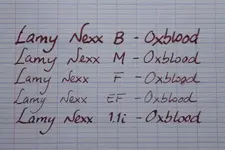 Lamy Nexx B - Oxblood
Lamy Nexx M - Oxblood
Lamy Nexx F - Oxblood
Lamy Nexx EF - Oxblood
Lamy Nexx 1.1i - Oxblood